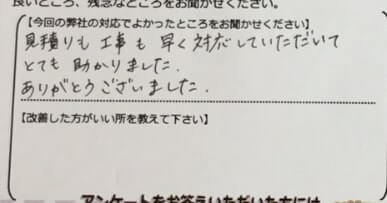 良いところ、残念なところをお聞かせください。
【今回の弊社の対応でよかったところをお聞かせください】
見積りも工事も早く対応していただいて
とても助かりました.
ありがとうございました.
【改善した方がいい所を教えて下さい】
アンケートをお答えいただいた方には